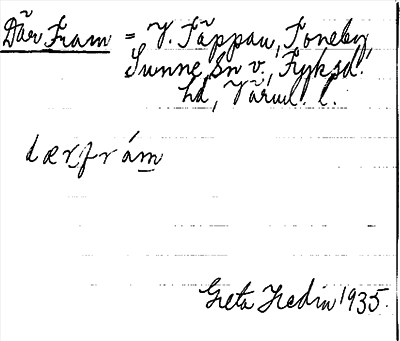 Där Fram = V. Täppan, Toneby,
Sunne Sn v., Fryksd.
hd, Värml. l.
dærfrám
Greta Hedin 1935.